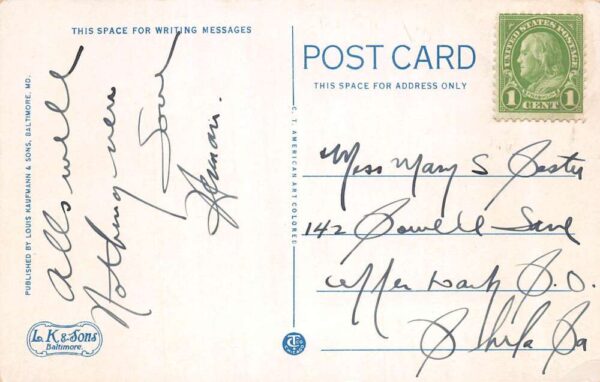 THIS SPACE FOR WRITING MESSAGES
Alls well
Nothing new
Love
Herman.
PUBLISHED BY LOUIS KAUFMANN & SONS, BALTIMORE, MD.
L. K. & Sons
Baltimore.
C. T. AMERICAN ART COLORED
POST CARD
THIS SPACE FOR ADDRESS ONLY
UNITED STATES POSTAGE
FRANKLIN
1 CENT 1
Miss Mary S
142 Powell Lane
Upper Darby P.O.
Phila Pa